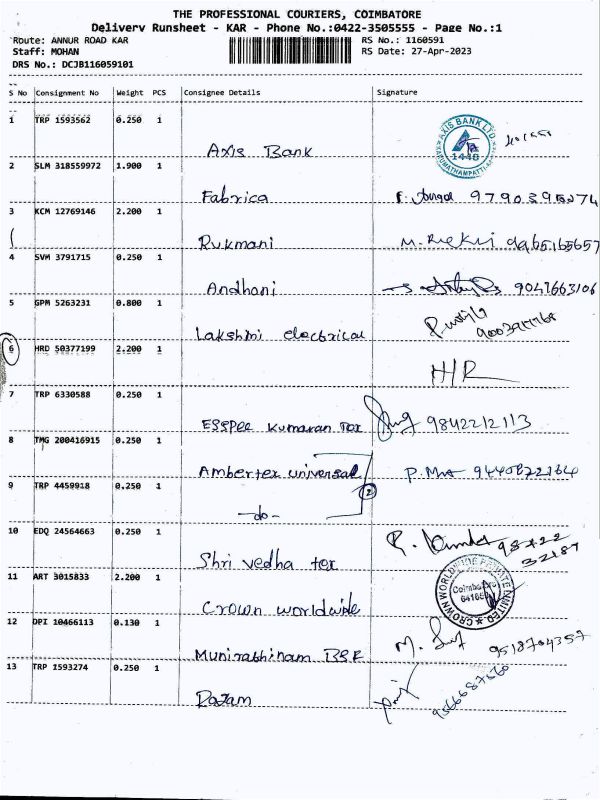 THE PROFESSIONAL COURIERS, COIMBATORE
Delivery Runsheet - KAR - Phone No.:0422-3505555 - Page No.:1
Route: ANNUR ROAD KAR
RS No.: 1160591
Staff: MOHAN
RS Date: 27-Apr-2023
DRS No.: DCJB116059101
S No Consignment No Weight PCS Consignee Details Signature
1 TRP 1593562 0.250 1
Axis Bank
AXIS BANK LTD.
1448
KARUMATHAMPATTI
2 SLM 318559972 1.900 1
Fabrica
3 KCM 12769146 2.200 1
Rukmani
4 SVM 3791715 0.250 1
Andhani
9047663106
5 GPM 5263231 0.800 1
Lakshmi electrical
6 HRD 50377199 2.200 1
H/R
7 TRP 6330588 0.250 1
ESSPEE Kumaran Tex 9842212113
8 TMG 200416915 0.250 1
Ambertex universal
9 TRP 4459918 0.250 1
-do-
2
10 EDQ 24564663 0.250 1
Shri vedha tex
11 ART 3015833 2.200 1
Crown worldwide
CROWN WORLDWIDE PRIVATE LIMITED
Coimbatore
12 DPI 10466113 0.130 1
Munirathinam
9518704357
13 TRP 1593274 0.250 1